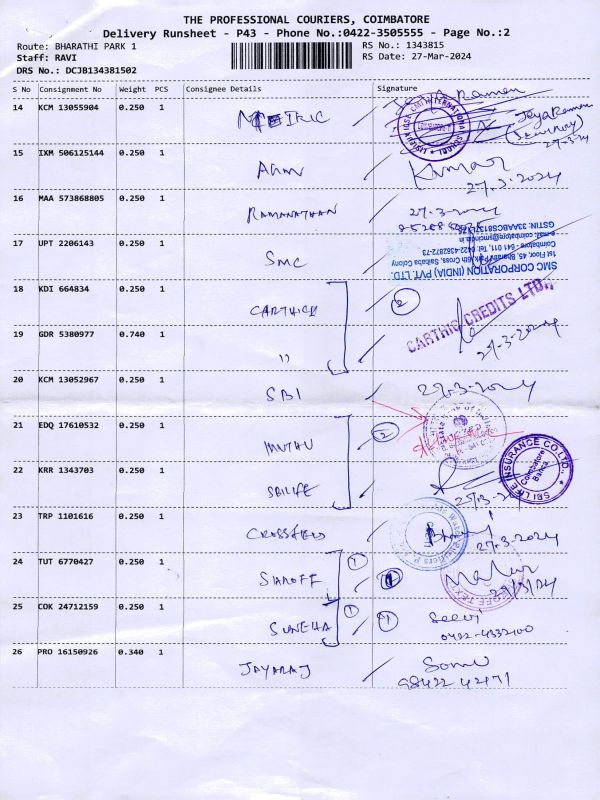 THE PROFESSIONAL COURIERS, COIMBATORE
Delivery Runsheet - P43 - Phone No.:0422-3505555 - Page No.:2
Route: BHARATHI PARK 1
RS No.: 1343815
Staff: RAVI
RS Date: 27-Mar-2024
DRS No.: DCJB134381502
S No Consignment No Weight PCS Consignee Details Signature
14 KCM 13055904 0.250 1
Jeya Raman
27-3-24
15 IXM 506125144 0.250 1 Arun Kumar
27.3.2024
16 MAA 573868805 0.250 1 RAMANATHAN 27-3-2024
17 UPT 2206143 0.250 1 SMC
SMC CORPORATION (INDIA) PVT. LTD.
1st Floor, 45, Bharathi Park 6th Cross, Saibaba Colony
Coimbatore - 641 011, Tel: 0422-4382872-73
18 KDI 664834 0.250 1 CARTHICK 2
CARTHIC CREDITS LTD.,
19 GDR 5380977 0.740 1 " 27-3-2024
20 KCM 13052967 0.250 1 SBI 27-3-2024
21 EDQ 17610532 0.250 1 MUTHU 2
22 KRR 1343703 0.250 1 SBILIFE
SBI LIFE INSURANCE CO. LTD.,
Coimbatore
23 TRP 1101616 0.250 1 27-3-2024
24 TUT 6770427 0.250 1 SHROFF 1
25 COK 24712159 0.250 1 SUNEHA 1 1 Selvi
0422-4332100
26 PRO 16150926 0.340 1 JAYARAJ
98422 42171